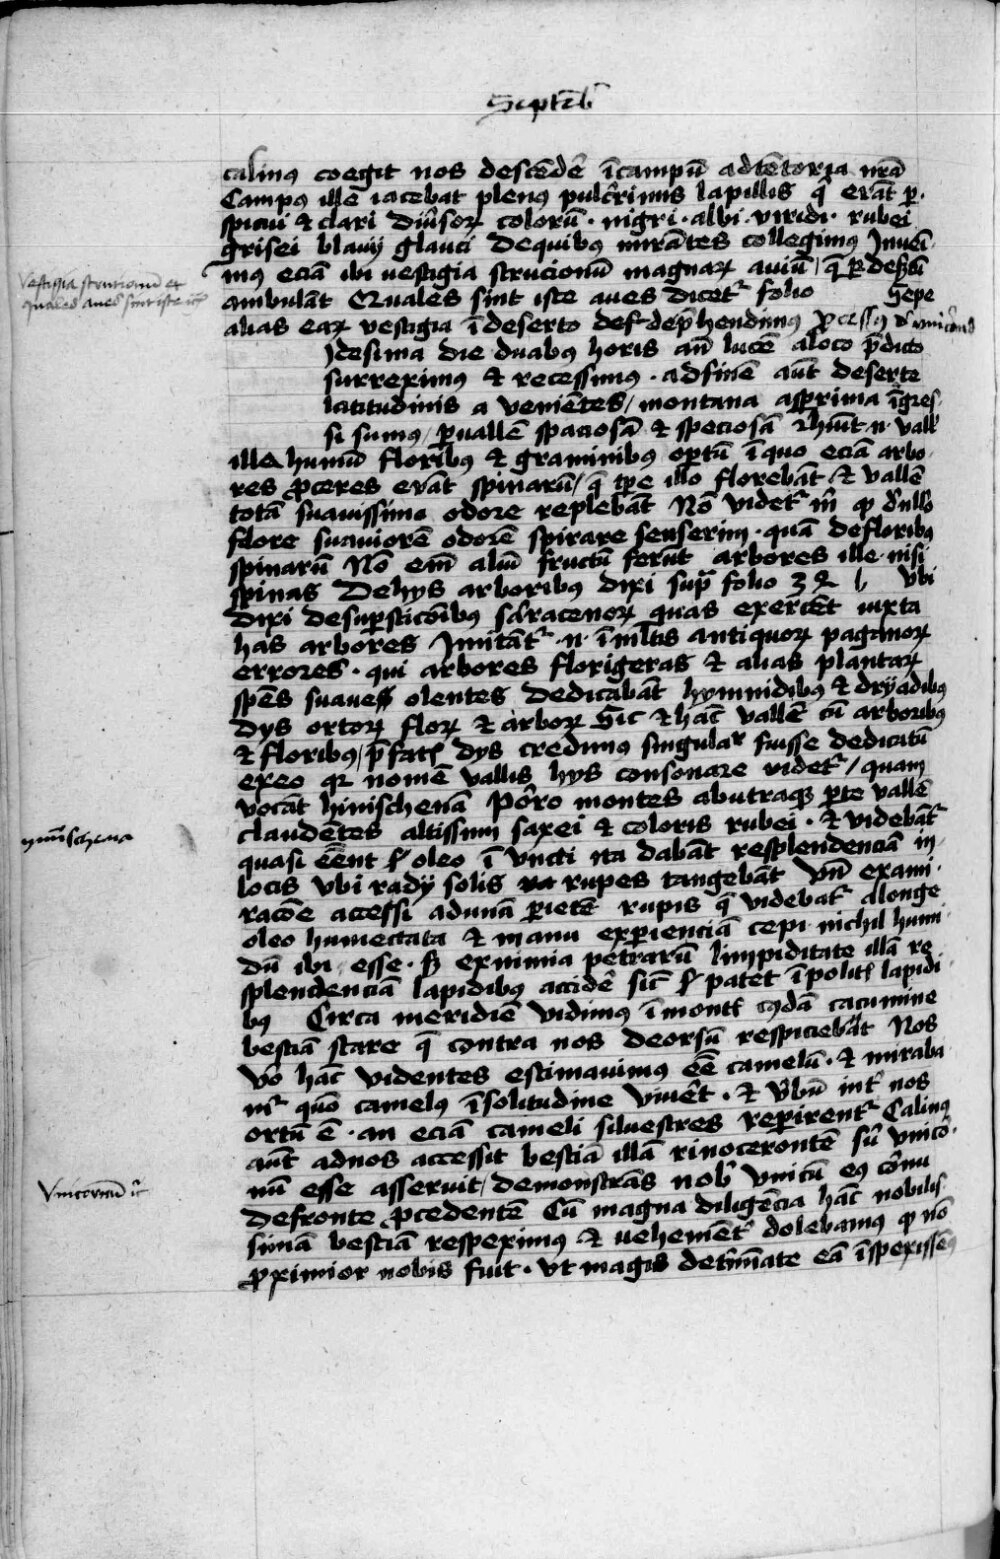 Septēb
calinꝰ coegit nos descēdē̂ ī campū ad tētoria nr̄a
Campꝰ ille iacebat plenꝰ pulcrimis lapillis q̂ erāt ꝑ
spicui & clari diūsoꝝ colorū · nigri · albi · viridi · rubei
grisei blauij glauci De quibꝰ mirātes collegimꝰ Inuēi
mꝰ eciā ibi uestigia strucionū magnaꝝ auiū / q̄ ꝑ de
ambulāt Quales sint iste aues dicet᷑ folio Sepe
alias eaꝝ vestigia ī deserto dep̄hendimꝰ
Vestigia strucionū et
quales aues sint iste
Idesima die duabꝰ horis an̄ lucē a loco p̄dicto
surreximꝰ & recessimꝰ · ad finē aūt deserte
latitudinis a veniētes / montana asꝑrima īgres
si sumꝰ / ꝑ uallē spaciosā & speciosā n̄ vall
illa humū floribꝰ & graminibꝰ optū ī quo eciā arbo
res ꝓceres erāt spinarū / q̄ tꝑe illo florebāt & vallē
totā suauissimo odore replebāt Nō videt᷑ m̄ ꝙ d̄ nllo
flore suauiorē odorē spirare senserim · quā de floribꝰ
spinarū Nō em̄ aliū fructū ferūt arbores ille nisi
spinas De hys arboribꝰ dixi sup̄ folio 32 vbi
dixi de suꝑsticōibꝰ saracenoꝝ quas exercēt iuxta
has arbores Imitāt᷑ · n · ī ml̄tis antiquoꝝ paganoꝝ
errores · qui arbores florigeras & alias plantaꝝ
spēs suaues olentes dedicabāt hymnidibꝰ & dryadibꝰ
dys ortoꝝ floꝝ & arboꝝ Sic & hāc vallē cū arboribꝰ
& floribꝰ / p̄fatꝭ dys credimꝰ singular fuisse dedicatū
ex eo qꝛ nomē vallis hys consonare videt᷑ / quam
vocāt hinischenā Porro montes ab utraqꝫ ꝑte vallē
claudētes altissimi saxei & coloris rubei · & videbāt᷑
quasi eēnt oleo ī uncti ita dabāt resplendenciā in
locis vbi radij solis rupes tangebāt Vn̄ exami
racōe accessi ad unā ꝑietē rupis q̄ videbat᷑ a longe
oleo humectata & manu exꝑienciā cepi nichil humi
dū ibi esse · sꝫ ex nimia petrarū limpiditate illā re
splendenciā lapidibꝰ accidē̂ sic̄ patet ī politꝭ lapidi
bꝰ Circa meridiē vidimꝰ ī montꝭ cꝰdā cacumine
bestiā stare q̄ contra nos deorsū respiciebat Nos
v̄o hāc videntes estimauimꝰ eē̄ camelū · & miraba
m᷑ quō camelꝰ ī solitudine viuēt · & v̄bū int̄ nos
ortū ē · an eciā cameli siluestres reperirent᷑ Calinꝰ
aūt ad nos accessit bestiā illā rinocerontē siū vnicor
nū esse asseruit / demonstrās nob̄ vnicū eꝰ cornu
de fronte ꝓcedentē Cū magna diligēcia hāc nobilis
simā bestiā respeximꝰ & uehemēt᷑ dolebamꝰ ꝙ nō
ꝓximior nobis fuit · ut magis det̄mīate eā īspexissemꝰ